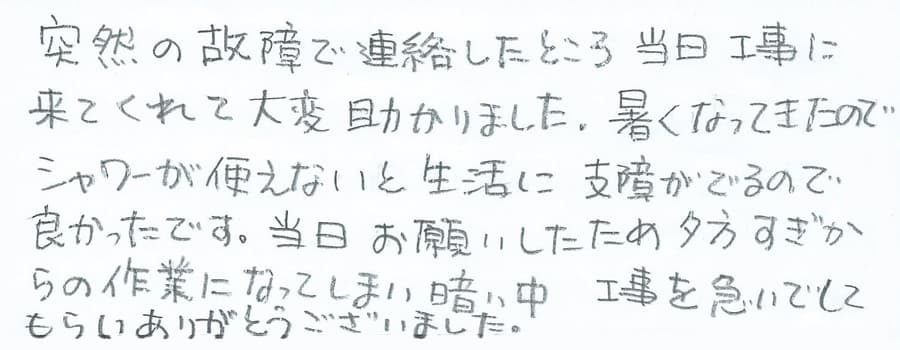 突然の故障で連絡したところ 当日 工事に
来てくれて 大変 助かりました。暑くなってきたので
シャワーが使えないと 生活に 支障がでるので
良かったです。当日 お願いしたため 夕方 すぎか
らの作業になってしまい 暗い中 工事を急いでして
もらいありがとうございました。